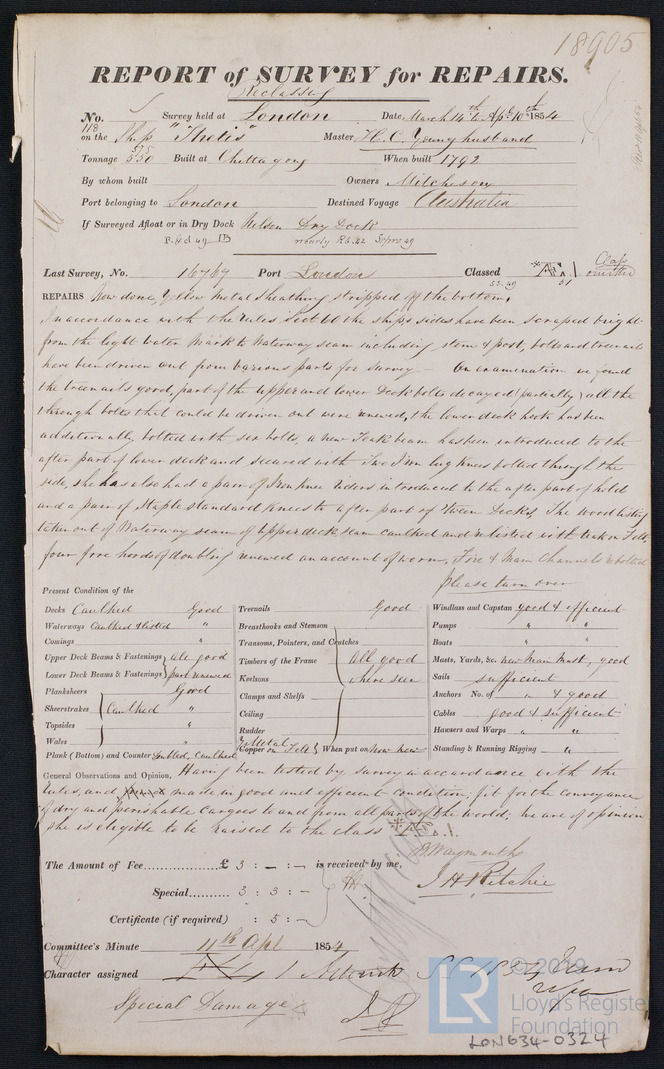 18905
REPORT of SURVEY for REPAIRS.
Reclassing
No. Survey held at London Date, March 14th to Apl 10th 1854
118
on the Ship "Thetis" Master H. C. Younghusband
575
Tonnage 550 Built at Chittagong When built 1792
By whom built Owners Mitcheson
Port belonging to London Destined Voyage Australia
If Surveyed Afloat or in Dry Dock Nelson Dry Dock
Last Survey, No. 16767 Port London Classed Class omitted
REPAIRS Now done, Yellow Metal Sheathing stripped off the bottom,
In accordance with the rules Sect 60 the ships sides have been scraped bright
from the light water mark to Waterway seam including stem & post, bolts and treenails
have been driven out from various parts for survey On examination we found
the treenails good, part of the upper and lower Deck bolts decayed (partially) all the
through bolts that could be driven out were renewed, the lower deck hook has been
additionally bolted with six bolts, a new Teak beam has been introduced to the
after part of lower deck and secured with Two Iron lug Knees bolted through the
side, she has also had a pair of Iron Knee riders introduced to the after part of hold
and a pair of Staple standard Knees to after part of 'tween Decks. The wood listing
taken out of Waterway seam of upper deck seam caulked and relisted with teak on Felt,
four fore hoods of doubling renewed on account of worm, Fore & Main Channels rebolted
please turn over
Present Condition of the
Decks Caulked Good
Waterways Caulked & listed "
Comings "
Upper Deck Beams & Fastenings } all good
Lower Deck Beams & Fastenings } part renewed
Planksheers Good
Sheerstrakes Caulked "
Topsides
Wales "
Plank (Bottom) and Counter Doubled, Caulked
Treenails Good
Breasthooks and Stemson
Transoms, Pointers, and Crutches
Timbers of the Frame All good
Keelsons where seen
Clamps and Shelfs
Ceiling
Rudder
Y Metal
Copper on Felt When put on Now new
Windlass and Capstan good & efficient
Pumps " "
Boats " "
Masts, Yards, &c. New Main Mast, good
Sails sufficient
Anchors No. of " & good
Cables good & sufficient
Hawsers and Warps " "
Standing & Running Rigging "
General Observations and Opinion, Having been tested by survey in accordance with the
rules, and made in good and efficient condition; fit for the conveyance
of dry and perishable Cargoes to and from all parts of the world; We are of opinion
she is eligible to be raised to the class Æ.1.
The Amount of Fee.......... £ 3 : – : – is received by me,
Special.......... 3 : 3 : –
Certificate (if required) : 5 : –
B Waymouth
J H Ritchie
Committee's Minute 11th Apl 1854
Character assigned
Special Damage
© 2019
LR
Lloyd's Register
Foundation
LON634-0324